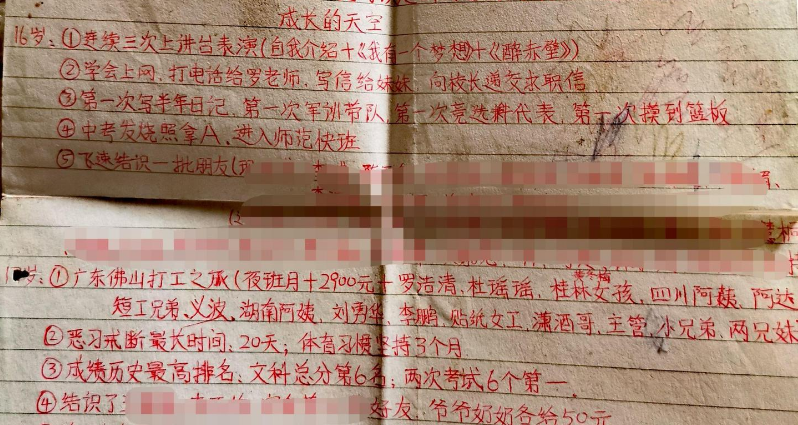 成长的天空
16岁:①连续三次上讲台表演(自我介绍+《我有一个梦想》+《醉赤壁》)
②学会上网、打电话给罗老师、写信给妹妹、向校长递交求职信
③第一次写半年日记、第一次军训带队、第一次竞选科代表、第一次摸到篮板
④中考发烧照拿A、进入师范快班
⑤飞速结识一批朋友(
岁:①广东佛山打工之旅(夜班月+2900元+罗浩清、杜瑶瑶、桂林女孩、四川阿姨、阿达
短工兄弟、义波、湖南阿姨、刘勇华、李鹏、贴纸女工、潇洒哥、主管、小兄弟、两兄妹
②恶习戒断最长时间、20天;体育习惯坚持3个月
③成绩历史最高排名:文科总分第6名;两次考试6个第一
④结识了 好友、爷爷奶奶各给50元